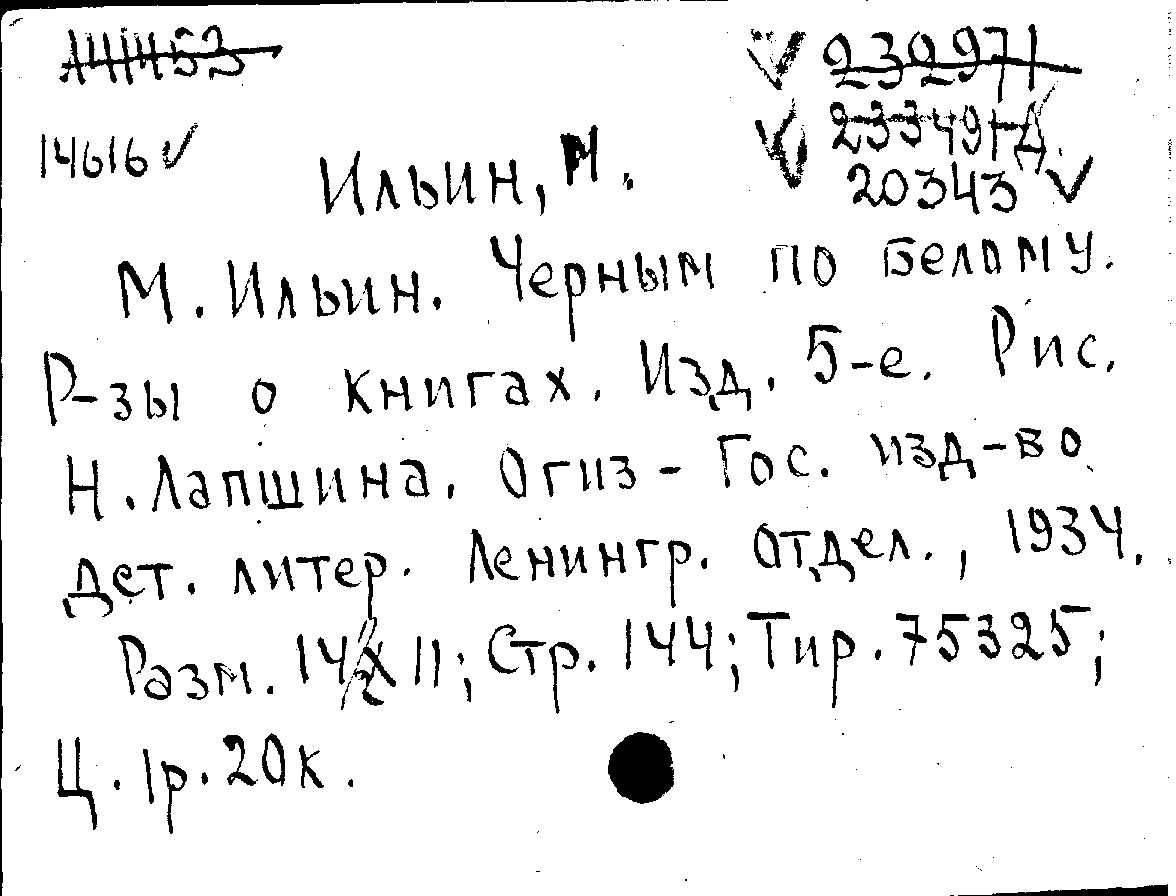 232971
14616✓
233491-Д.
Ильин, М.
20343 ✓
М. Ильин. Черным по белому.
Р-зы о книгах. Изд. 5-е. Рис.
Н. Лапшина. Огиз - Гос. изд-во
дет. литер. Ленингр. отдел., 1934.
Разм. 14х11; Стр. 144; Тир. 75325;
Ц. 1р. 20к.